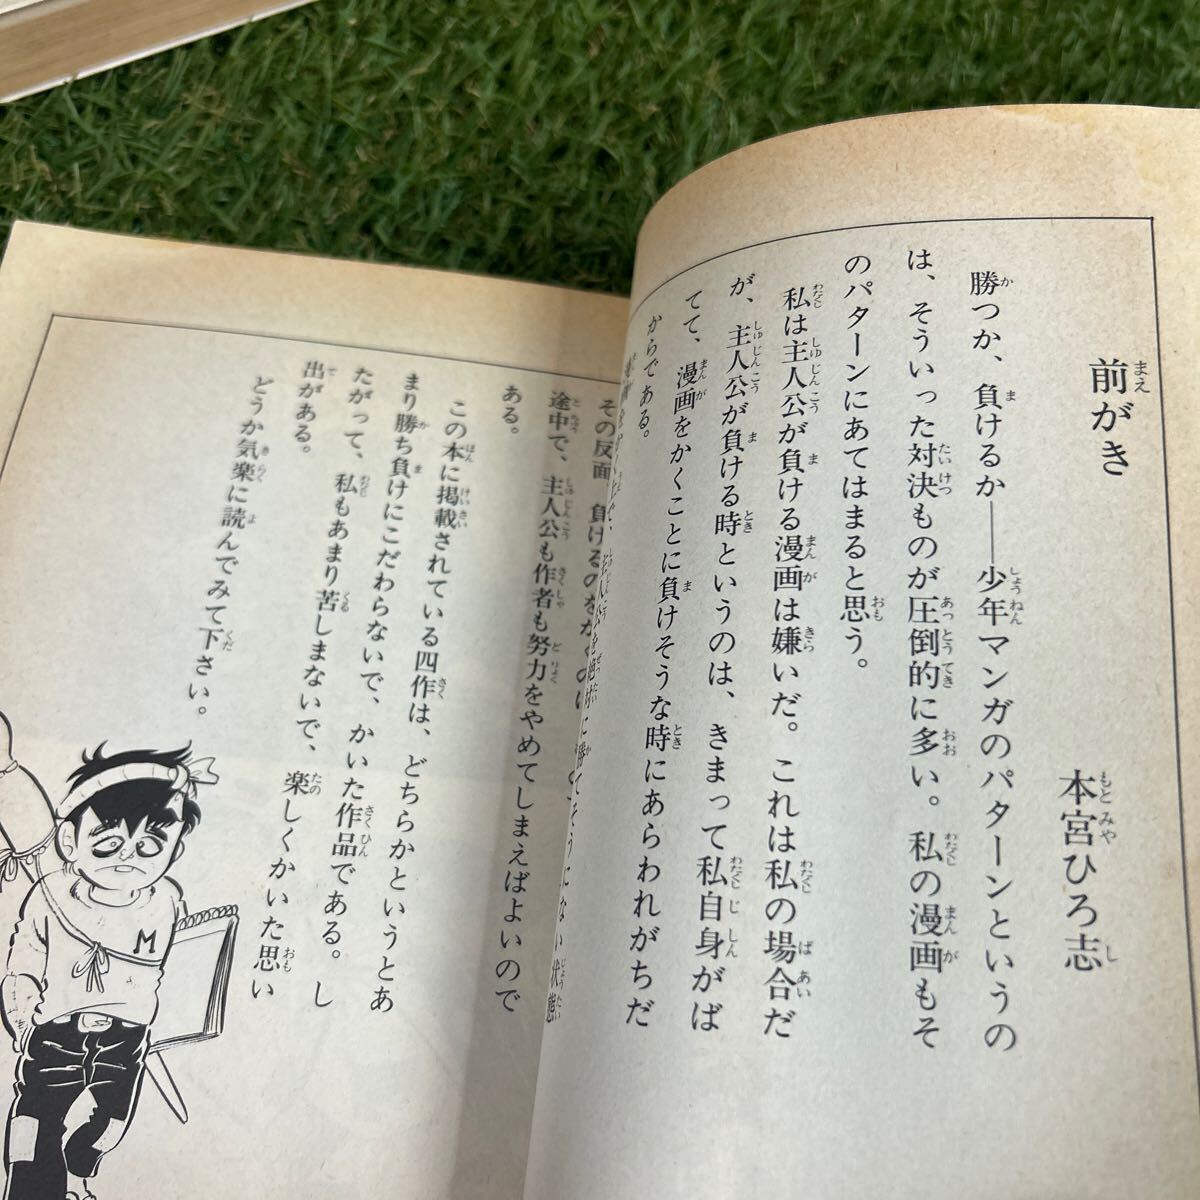 前がき
本宮ひろ志
勝つか、負けるか——少年マンガのパターンというの
は、そういった対決ものが圧倒的に多い。私の漫画もそ
のパターンにあてはまると思う。
私は主人公が負ける漫画は嫌いだ。これは私の場合だ
が、主人公が負ける時というのは、きまって私自身がば
てて、漫画をかくことに負けそうな時にあらわれがちだ
からである。
主人公を絶対に勝てそうにない状態
その反面、負けるのをかくのは
途中で、主人公も作者も努力をやめてしまえばよいので
ある。
この本に掲載されている四作は、どちらかというとあ
まり勝ち負けにこだわらないで、かいた作品である。し
たがって、私もあまり苦しまないで、楽しくかいた思い
出がある。
どうか気楽に読んでみて下さい。
M